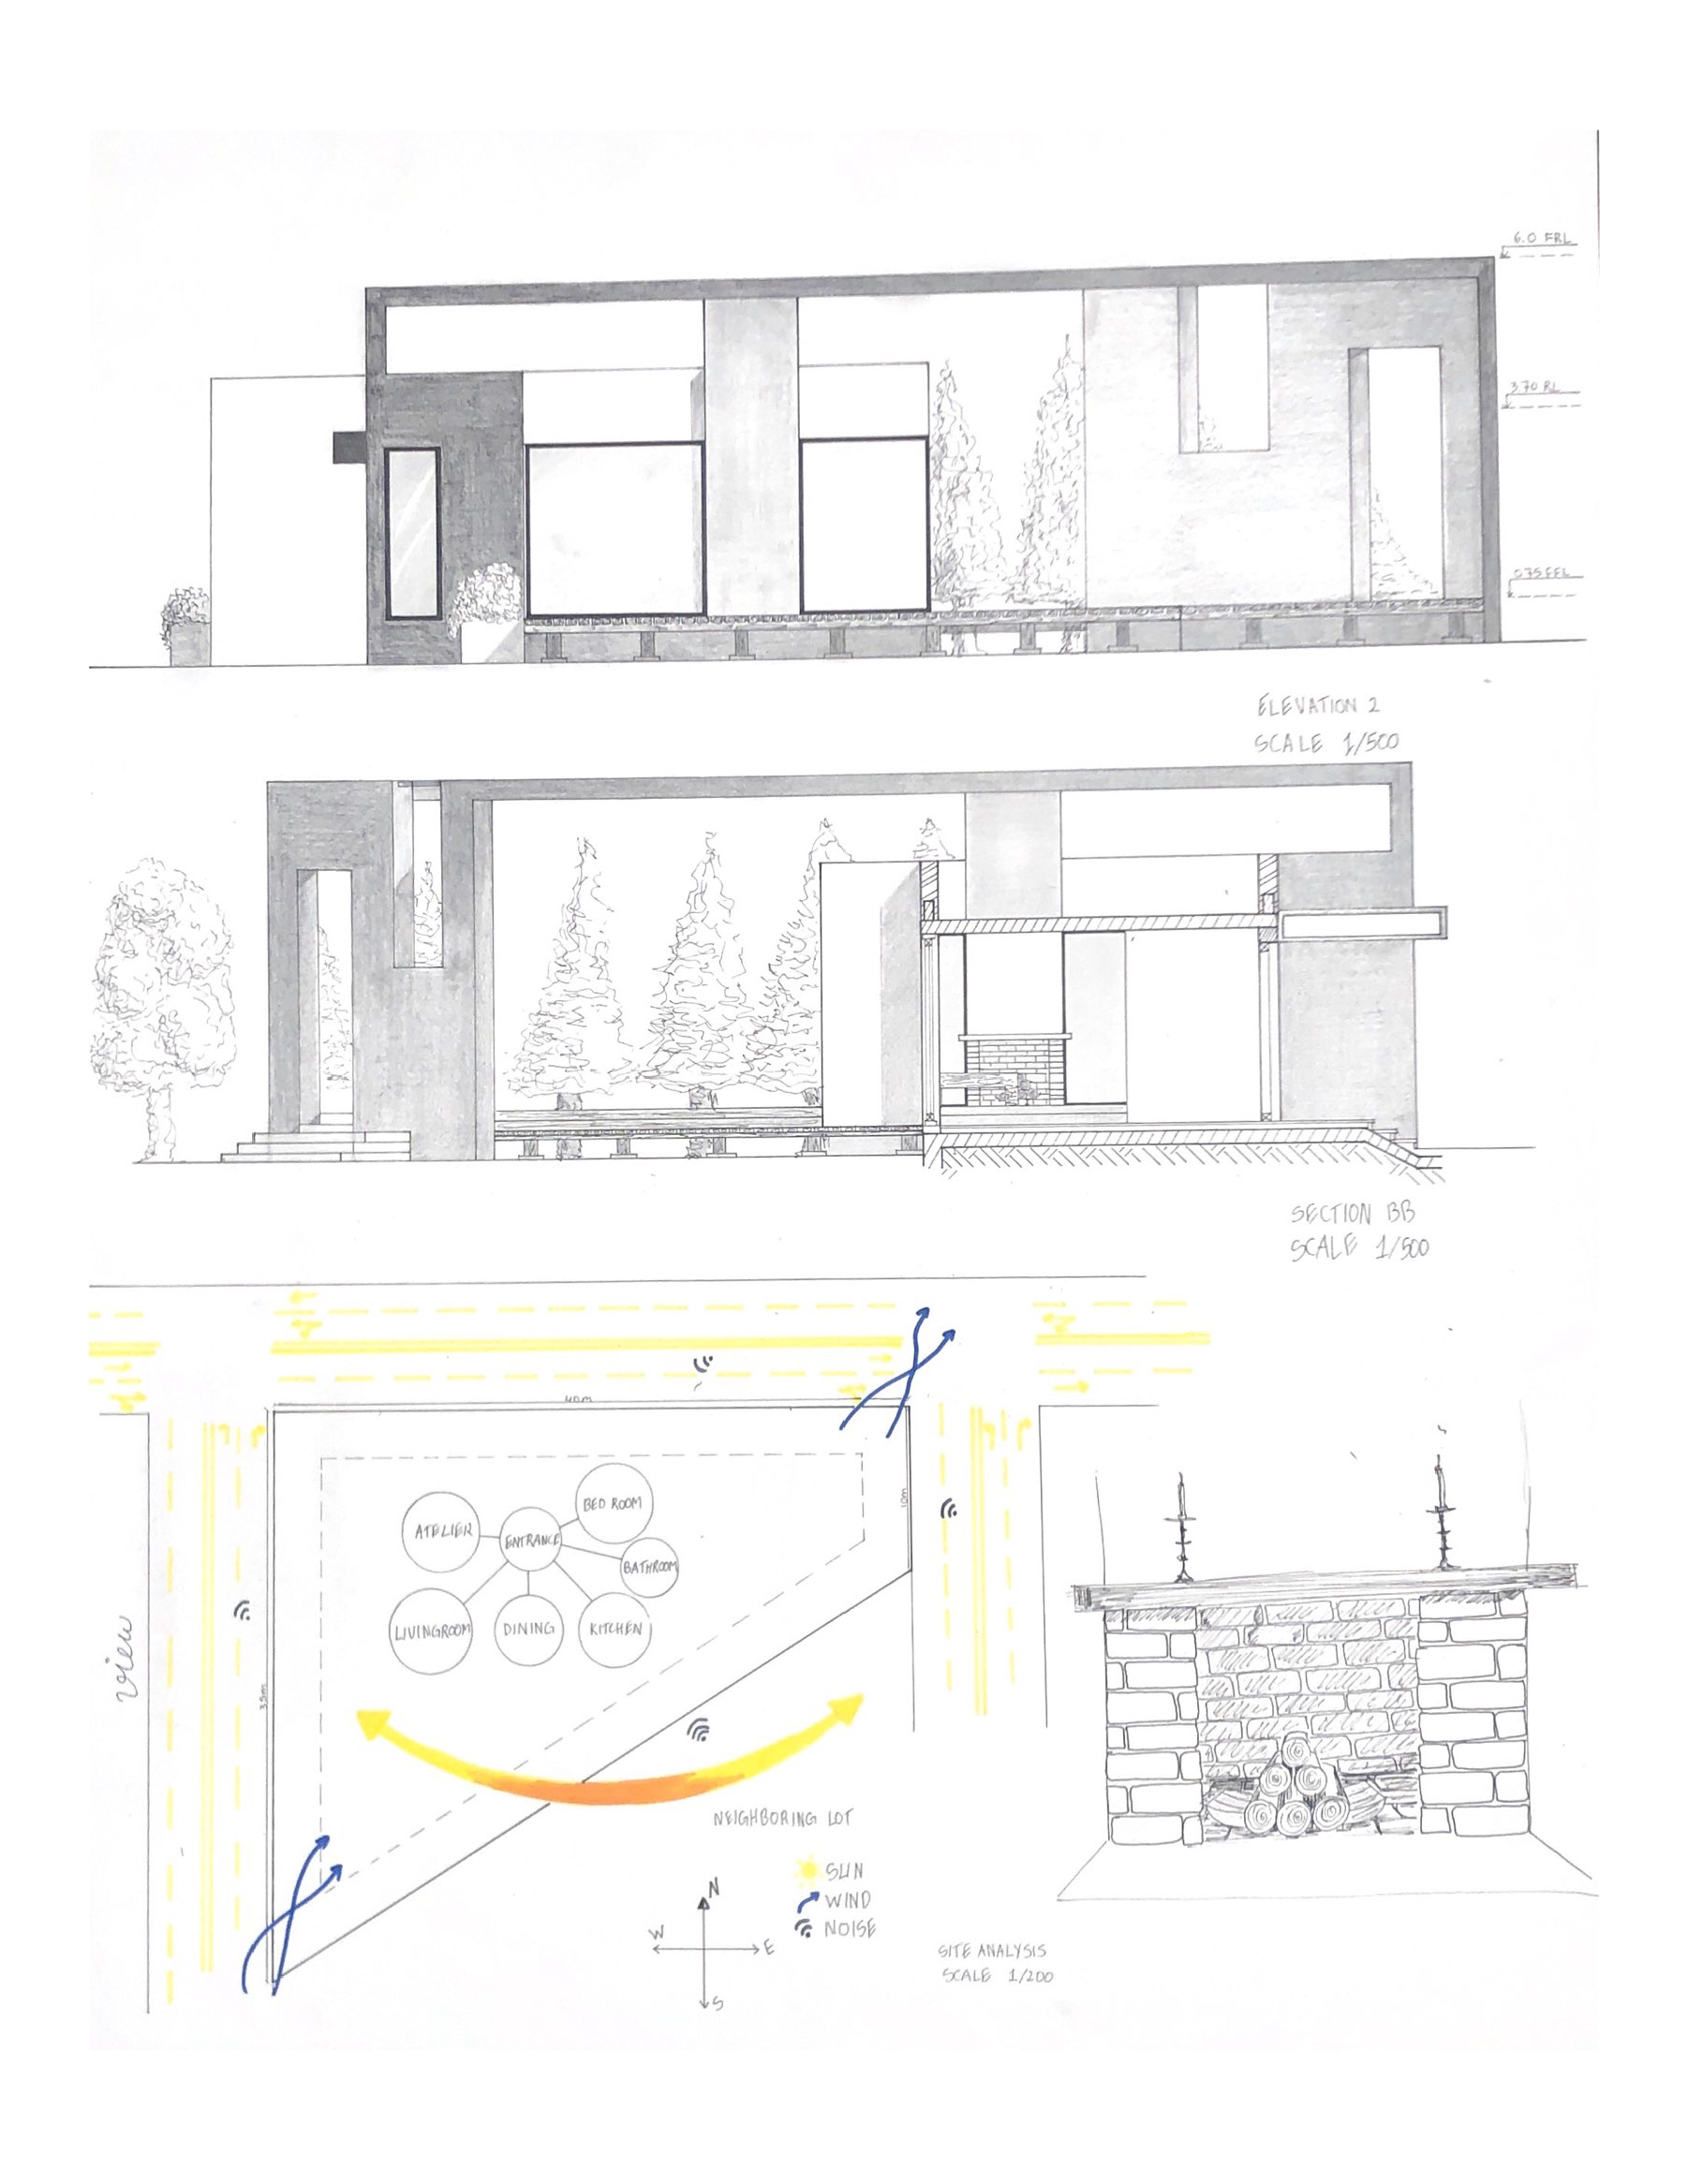 6.0 FRL
3.70 RL
0.75 FFL
ELEVATION 2
SCALE 1/500
SECTION BB
SCALE 1/500
40m
10m
35m
view
BED ROOM
ATELIER
ENTRANCE
BATHROOM
LIVINGROOM
DINING
KITCHEN
NEIGHBORING LOT
SUN
WIND
NOISE
N
W
E
S
SITE ANALYSIS
SCALE 1/200